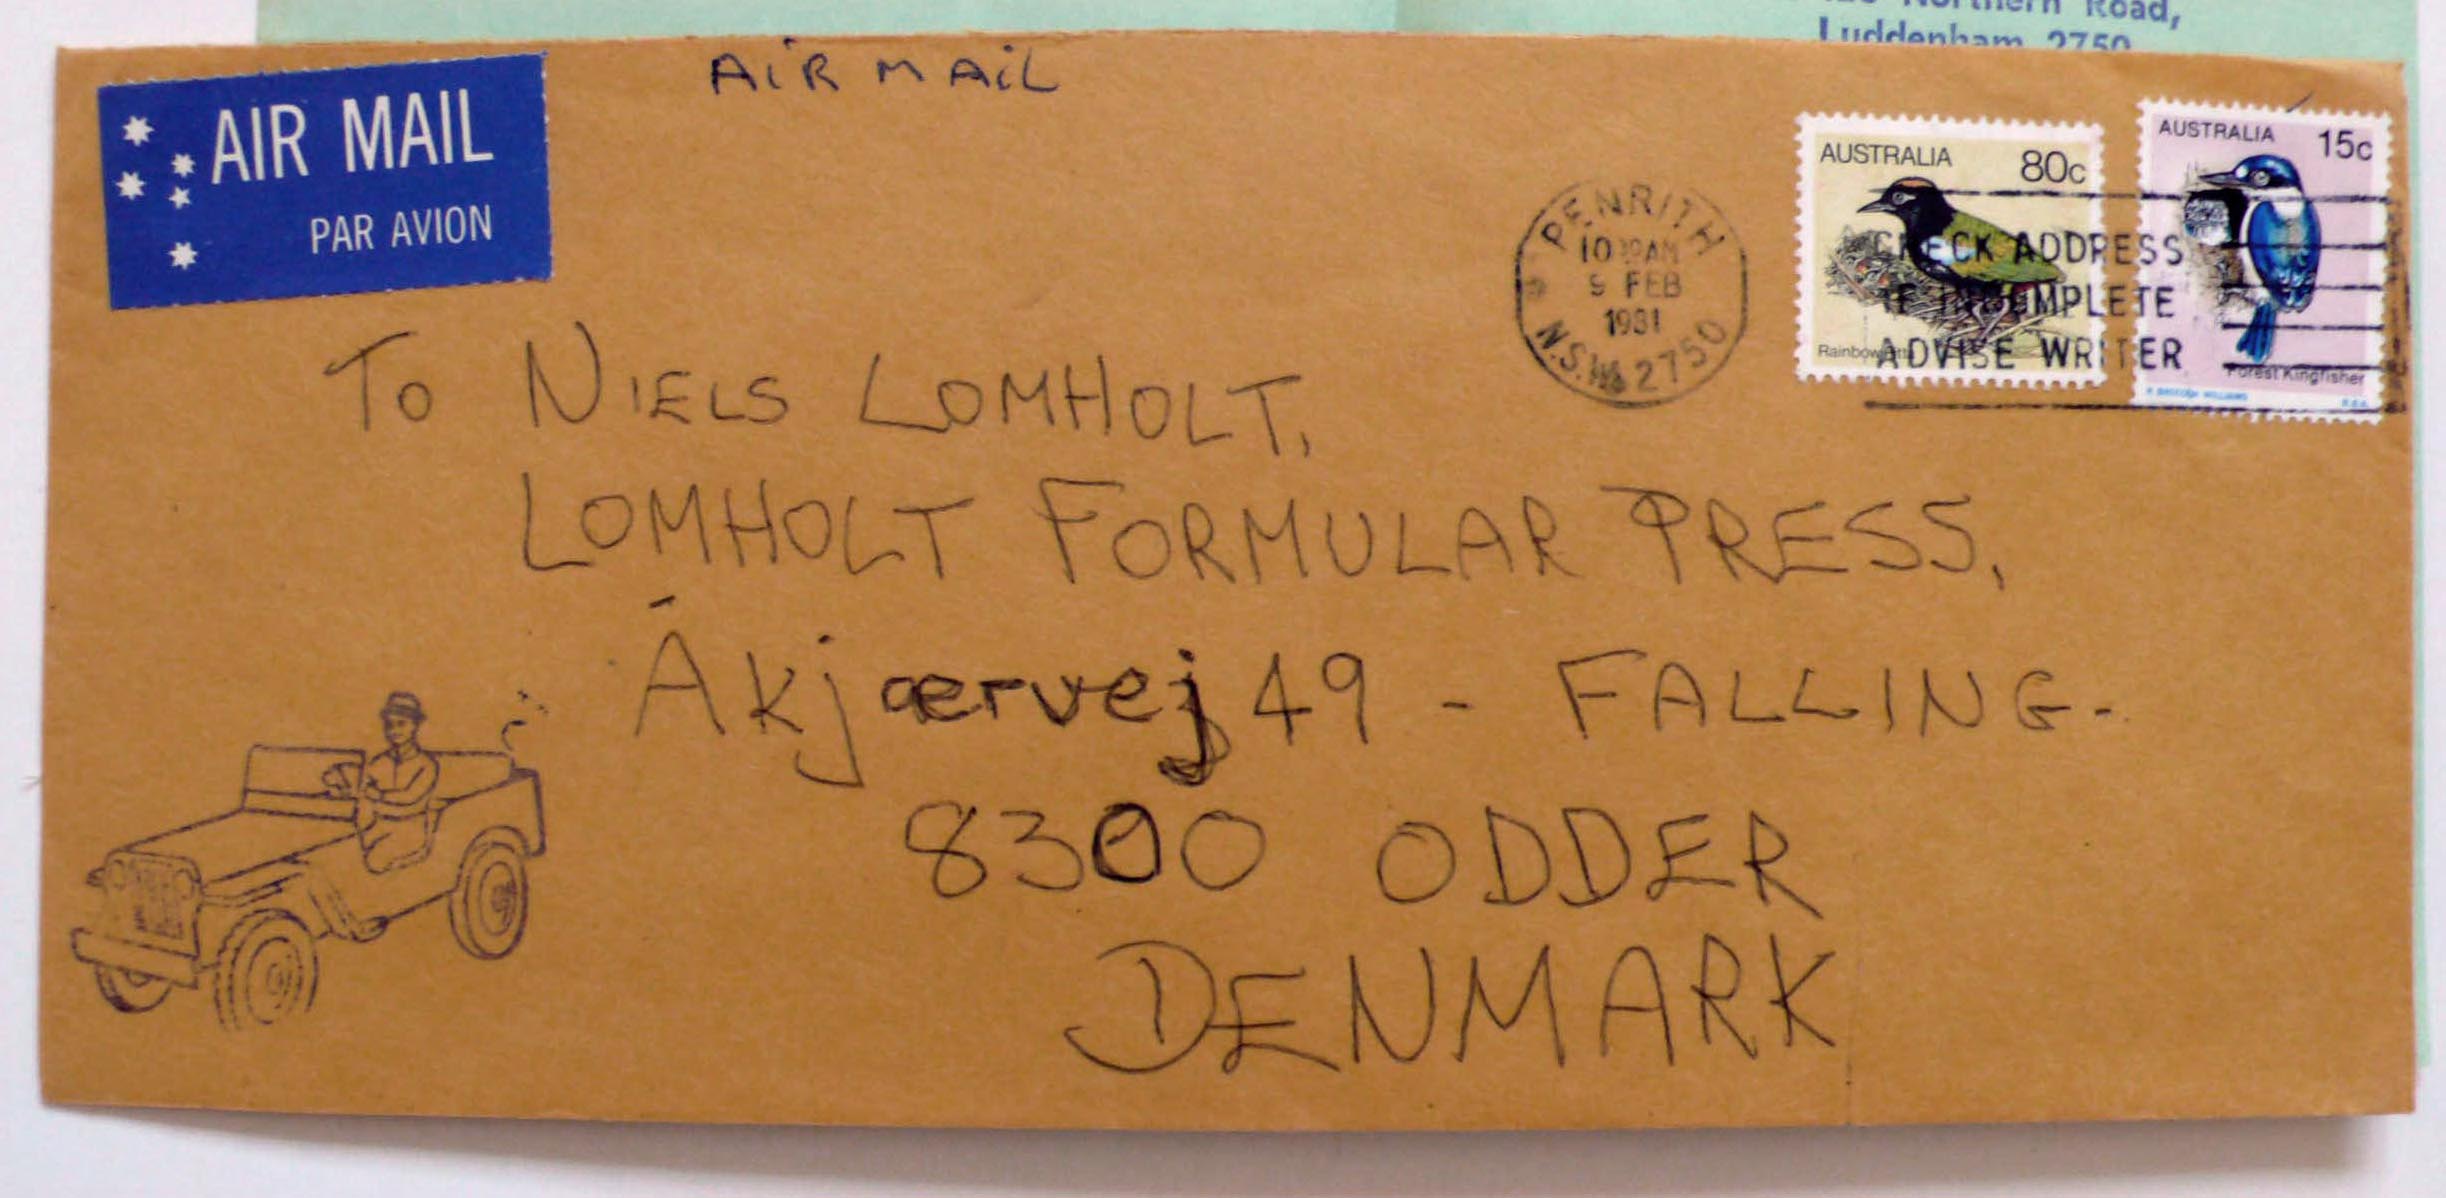 Northern Road,
Luddenham 2750
AIR MAIL
PAR AVION
AIR MAIL
AUSTRALIA 80c
Rainbow
AUSTRALIA 15c
Forest Kingfisher
PENRITH
9 FEB
1981
N.S.W. 2750
CHECK ADDRESS
IF INCOMPLETE
ADVISE WRITER
To NIELS LOMHOLT,
LOMHOLT FORMULAR PRESS,
Åkjærvej 49 - FALLING-
8300 ODDER
DENMARK